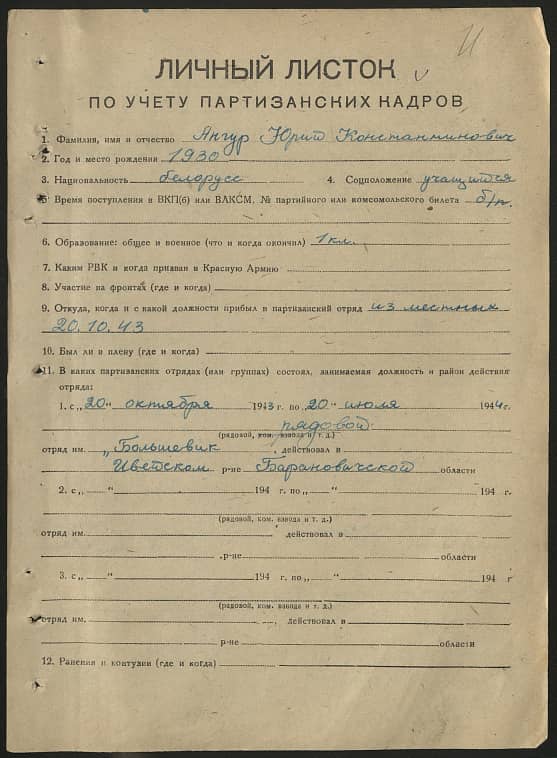 ЛИЧНЫЙ ЛИСТОК
ПО УЧЕТУ ПАРТИЗАНСКИХ КАДРОВ
1. Фамилия, имя и отчество Янгур Юрий Константинович
2. Год и место рождения 1930
3. Национальность белорусс 4. Соцположение учащийся
5. Время поступления в ВКП(б) или ВЛКСМ, № партийного или комсомольского билета б/п.
6. Образование: общее и военное (что и когда окончил) 1 кл.
7. Каким РВК и когда призван в Красную Армию
8. Участие на фронтах (где и когда)
9. Откуда, когда и с какой должности прибыл в партизанский отряд из местных
20.10.43
10. Был ли в плену (где и когда)
11. В каких партизанских отрядах (или группах) состоял, занимаемая должность и район действия
отряда:
1. с „20“ октября 1943 г. по „20“ июля 1944 г.
рядовой
(рядовой, ком. взвода и т. д.)
отряд им. „Большевик действовал в
Ивенском р-не Барановичской области
2. с „ “ 194 г. по „ “ 194 г.
(рядовой, ком. взвода и т. д.)
отряд им. действовал в
р-не области
3. с „ “ 194 г. по „ “ 194 г
(рядовой, ком. взвода и т. д.)
отряд им. действовал в
р-не области
12. Ранения и контузии (где и когда)